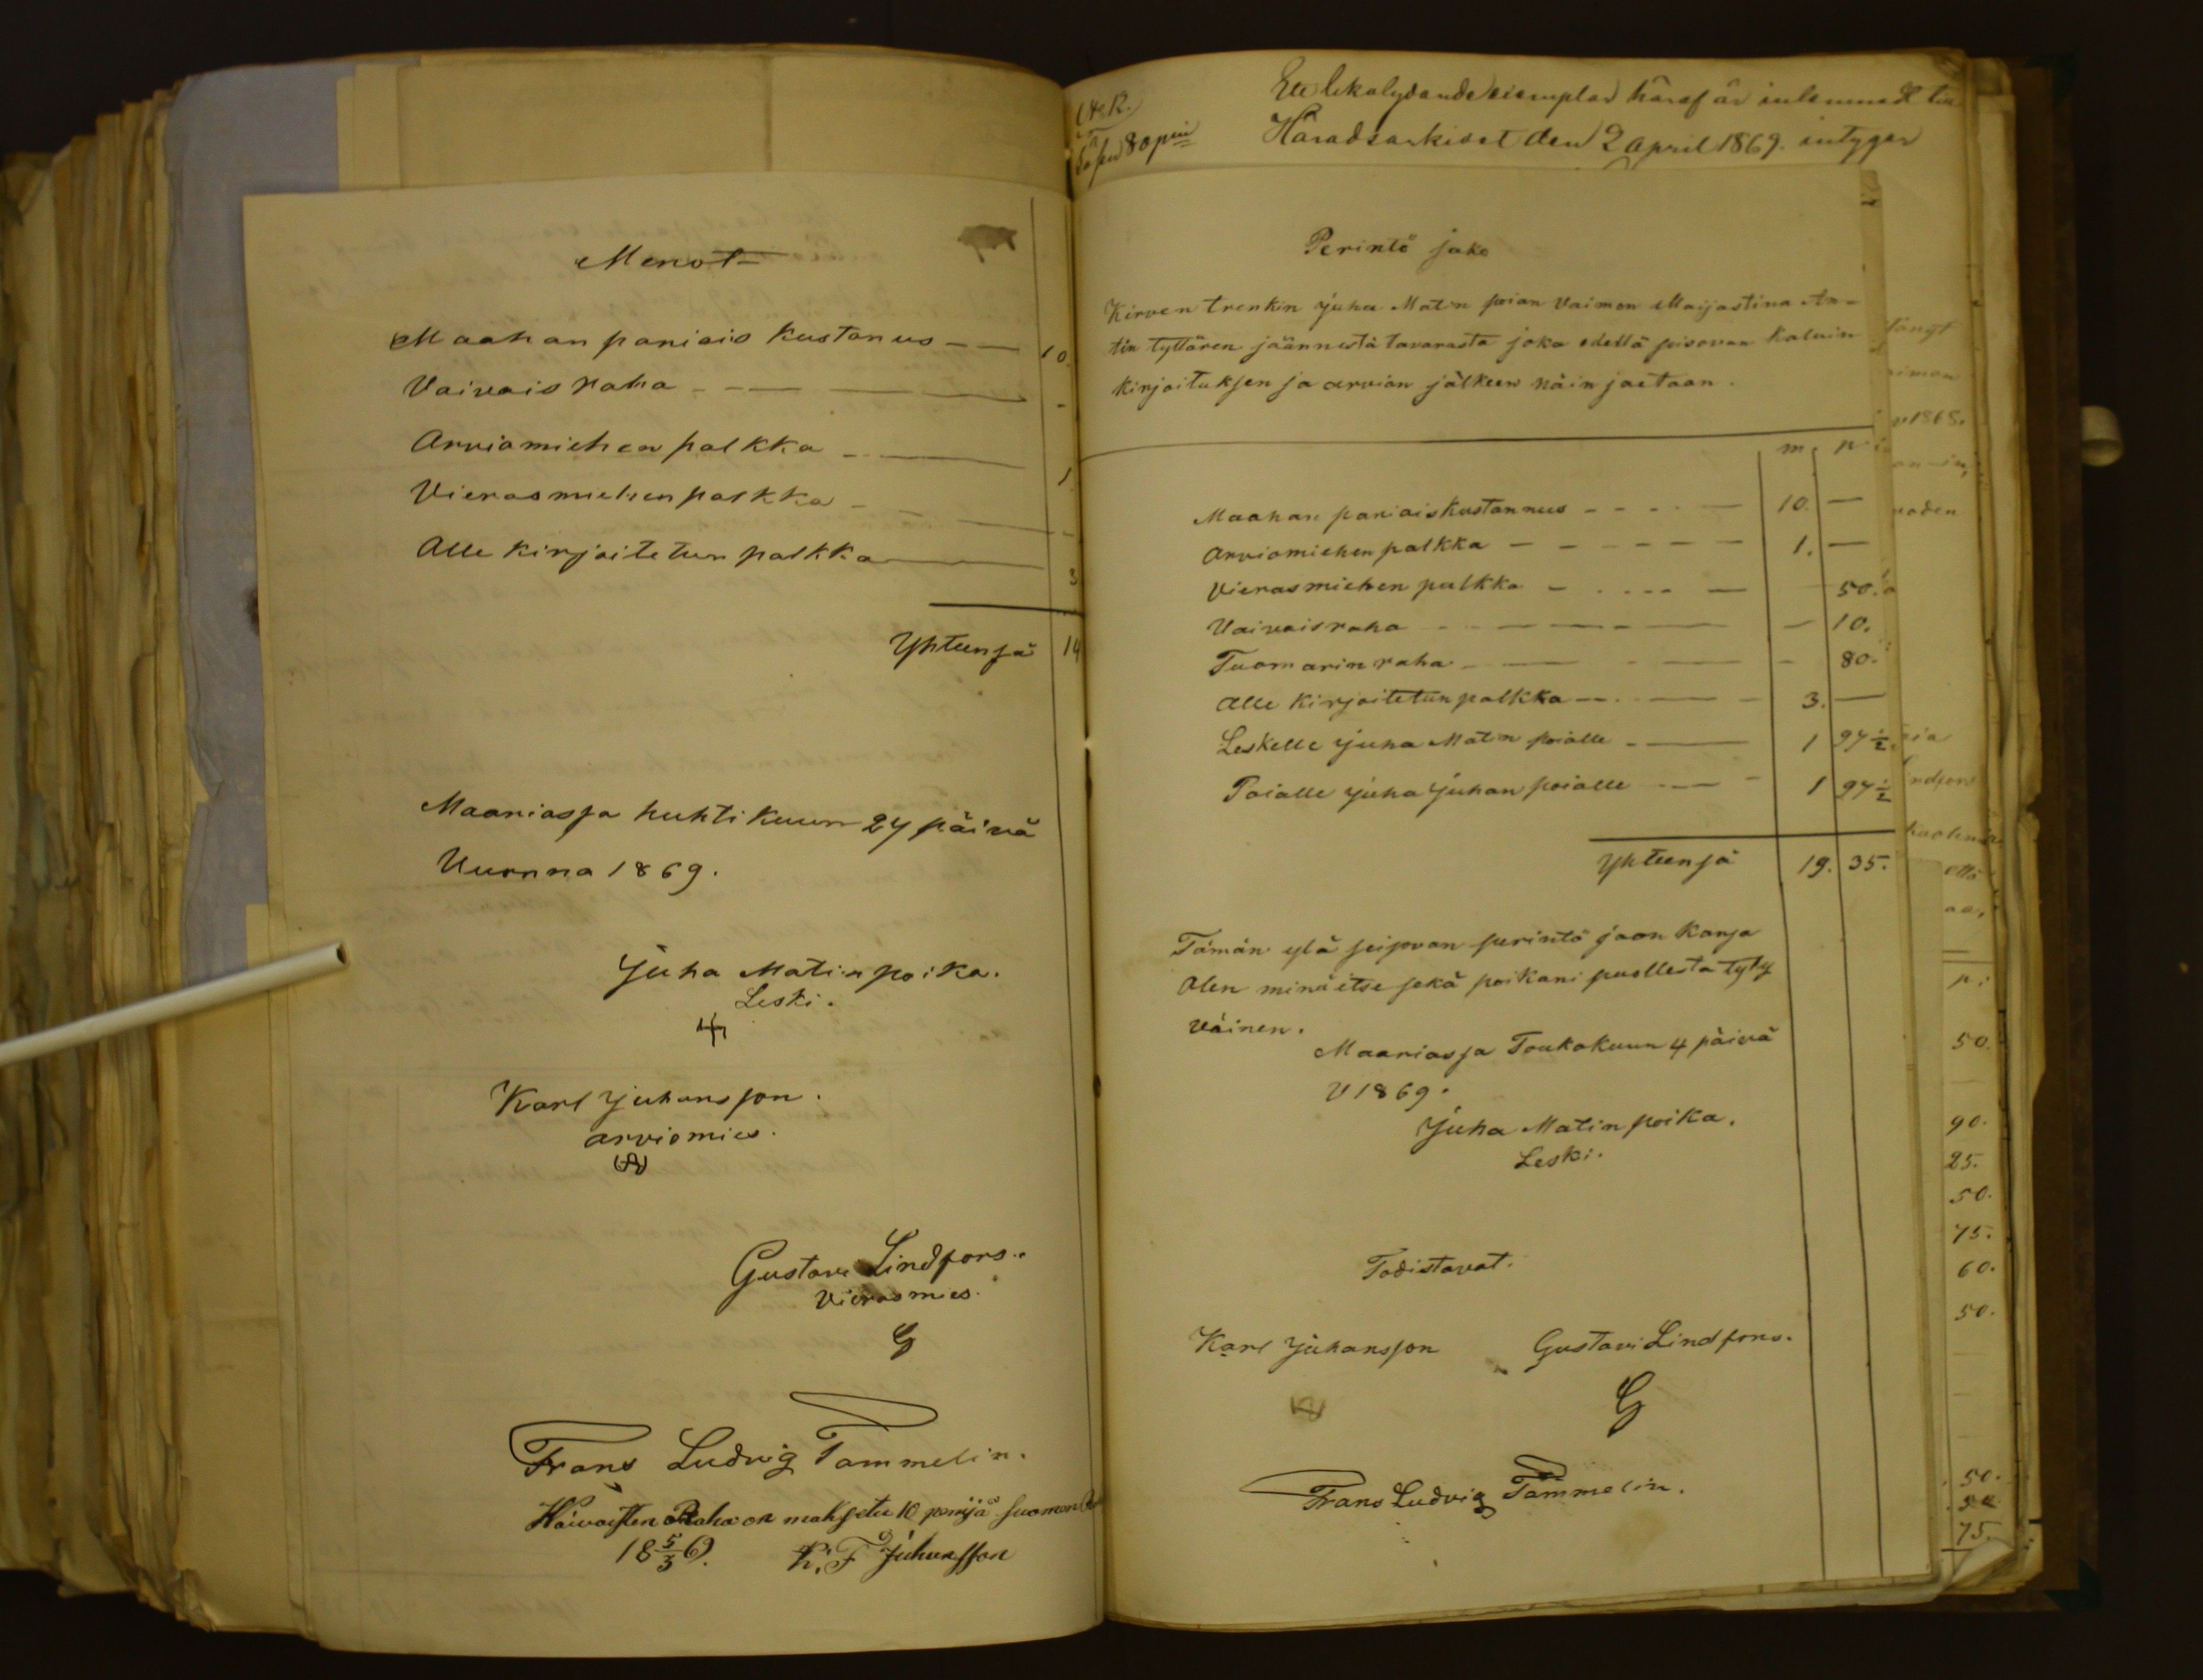 Menot
Maahan paniais kustanus - - 10
Vaivais raha - - - -
Arviamiehen palkka - - 1
Vierasmiehen palkka - - - -
Alle kirjoitetun palkka - 3
Yhteensä 14
Maariassa huhtikuun 27 päivä
Vuonna 1869.
Juha Matin poika.
Leski.
Karl Juhansson.
arviomies.
Gustav Lindfors.
Vierasmies.
G
Frans Ludvig Tammelin.
Waivaisten Raha on maksettu 10 pennjä Suomen
18 5/3 69. K. F Juhansson
80 pni
Ett likalydande exemplar häraf är inlemnadt till
Häradsarkivet den 2 April 1869. intygar
Perintö jako
Kirven trenkin Juha Matin poian Vaimon Maijastina An-
tin tyttären jäännestä tavarasta joka edellä pisovan kaluin
kirjoituksen ja arvion jälkeen näin jaetaan.
m. p.
Maahan paniaiskustannus - - - - 10. —
Arviomiehen palkka - - - - - 1. —
Vierasmiehen palkka - - - - 50.
Vaivaisraha - - - - - 10.
Tuomarin raha - - - - 80.
Alle kirjoitetun palkka - - - 3. —
Leskelle Juha Matin poialle - — 1 97 ½
Poialle Juha Juhan poialle - — 1 97 ½
Yhteensä 19. 35.
Tämän ylä seisovan perintö jaon kansa
Olen minä itse sekä poikani puollesta tyty
väinen.
Maariassa Toukokuun 4 päivä
V 1869.
Juha Matin poika.
Leski.
Todistavat.
Karl Juhansson Gustavi Lindfors.
G
Frans Ludvig Tammelin.
1868.
voden
p:
50.
90.
25.
50.
75.
60.
50.
50.
75.